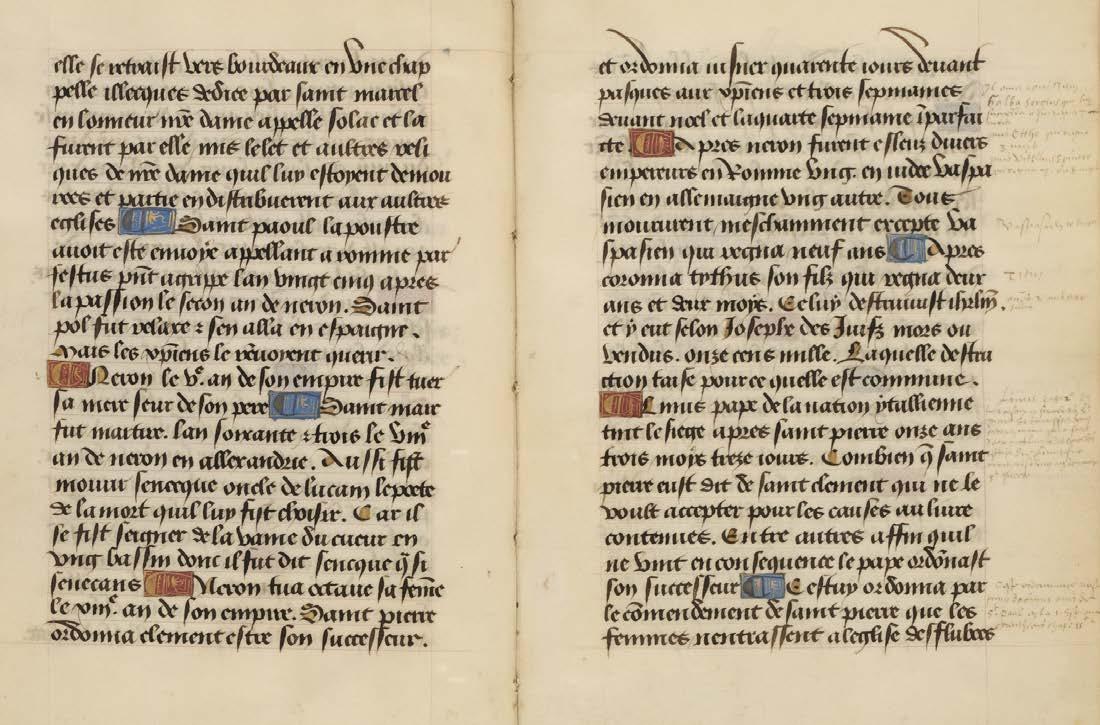 elle se retraist vers bourdeaux en vne chap
pelle illecques dediee par saint marcel
en lonneur nr̃e dame appelle solac et la
furent par elle mis le let et aultres reli
ques de nr̃e dame quil luy estoyent demou
rees et partie en distribuerent aux aultres
eglises Saint paoul lapoustre
auoit este enuoye appellant a romme par
festus pñt agrippe lan vingt cinq apres
la passion le secon an de neron. Saint
pol fut relaxe ⁊ sen alla en espaigne.
Mais les xp̃iens le renuoyent querir.
Neron le vᵉ. an de son empire fist tuer
sa mere seur de son pere Saint marc
fut martire. lan soixante ⁊ trois le viiiᵉ
an de neron en allexandrie. Aussi fist
mourir senecque oncle de lucam le poete
de la mort quil luy fist choisir. Car il
se fist seigner de la vaine du cueur en
vng bassin donc il fut dit sencque q̃ si
senecans Neron tua octaue sa fem̃e
le viiiᵉ. an de son empire. Saint pierre
ordonna clement estre son successeur.
et ordonna iusner quarente iours deuant
pasques aux xp̃iens et trois sepmaines
deuant noel et la quarte sepmaine ĩparfai
cte Apres neron furent esleuz diuers
empereurs en Romme vng. en iudee vaspa
sien en allemaigne vng autre. Tous
moururent meschamment excepte va
spasien qui regna neuf ans Apres
coronna tythus son filz qui regna deux
ans et deux moys. Celuy destruiust ihrl̃m.
et y eut selon Josephe des Juifz mors ou
vendus. onze cens mille. Laquelle destru
ction taise pour ce quelle est commune.
Linus pape de la nation ytallienne
tint le siege apres saint pierre onze ans
trois moys treze iours. Combien q̃ saint
pierre eust dit de saint clement qui ne le
voult accepter pour les causes au liure
contenues. Entre autres affin quil
ne vint en consequence le pape ordonnast
son successeur Cestuy ordonna par
le cõmendement de saint pierre que les
femmes nentrassent a leglise desflubees
Titus